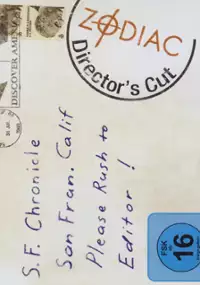 ZODIAC
Director's Cut
DISCOVER AMERICA
S.F. Chronicle
San Fran. Calif
Please Rush to
Editor!
FSK
ab
16
freigegeben